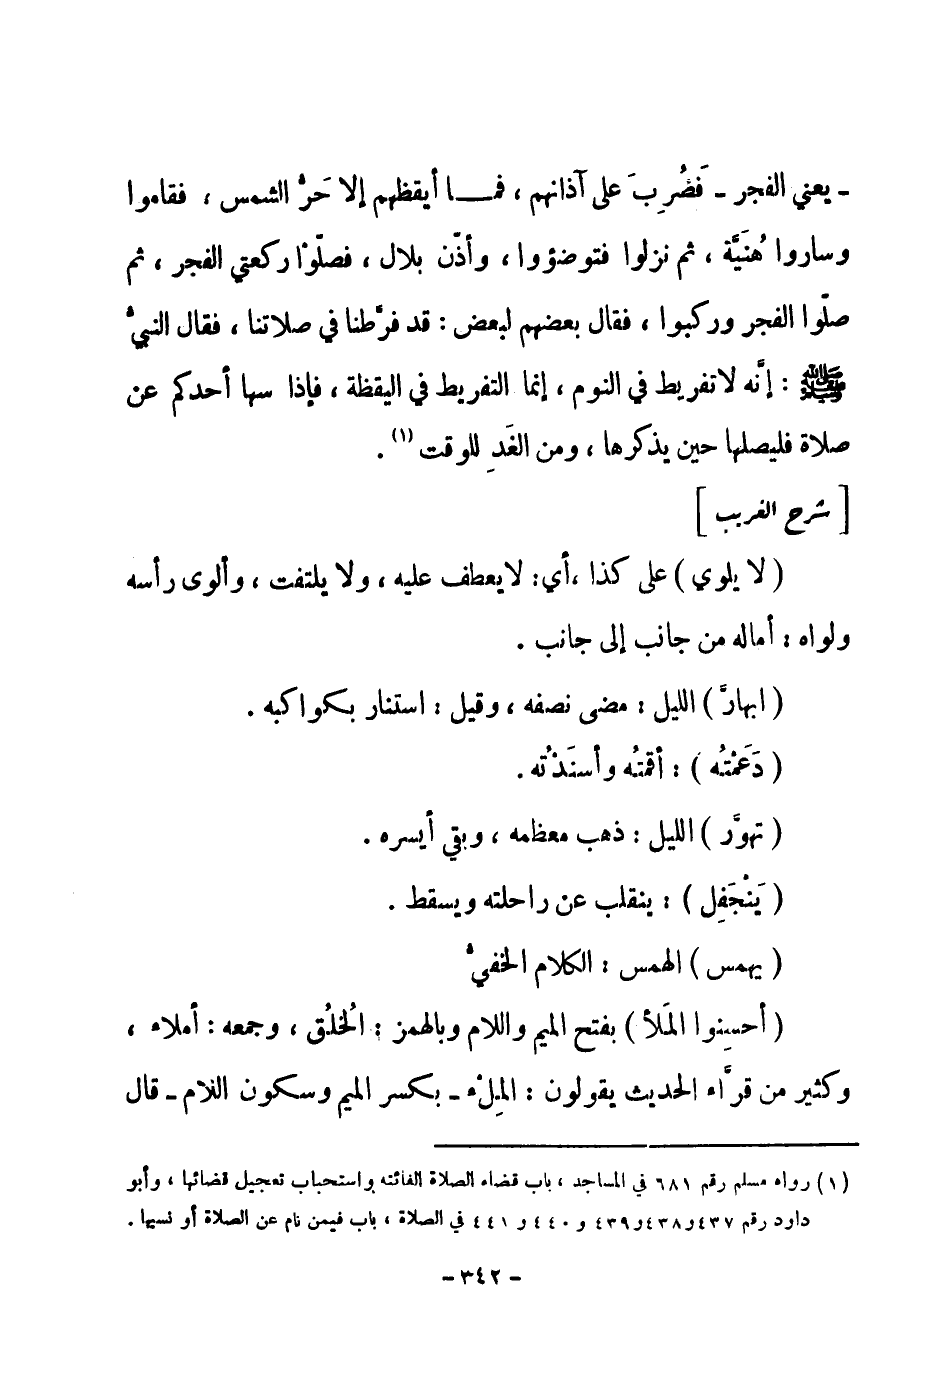 ـ يعني الفجر ـ فَضُرِبَ على آذانهم ، فمـــا أيقظهم إلا حَرُّ الشمس ، فقاموا
وساروا هُنَيَّة ، ثم نزلوا فتوضؤوا ، وأذّن بلال ، فصلّوْا ركعتي الفجر ، ثم
صلّوا الفجر وركبوا ، فقال بعضهم لبعض : قد فرَّطنا في صلاتنا ، فقال النبيُّ
ﷺ : إنَّه لا تفريط في النوم ، إنما التفريط في اليقظة ، فإذا سها أحدكم عن
صلاة فليصلها حين يذكرها ، ومن الغَدِ للوقت (١) .
[ شرح الغريب ]
( لا يلوي ) على كذا ،أي: لا يعطف عليه ، ولا يلتفت ، وألوى رأسه
ولواه : أماله من جانب إلى جانب .
( ابهارَّ ) الليل : مضى نصفه ، وقيل : استنار بكواكبه .
( دَعَمْتُه ) : أقمتُه وأسنَدْتُه .
( تهوَّر ) الليل : ذهب معظمه ، وبقي أيسره .
( يَنْجَفِل ) : ينقلب عن راحلته ويسقط .
( يهمس ) الهمس : الكلام الخفيُّ
( أحسِنوا المَلأَ ) بفتح الميم واللام وبالهمز : الخُلُق ، وجمعه : أملاء ،
وكثير من قرَّاء الحديث يقولون : المِلْء ـ بكسر الميم وسكون اللام ـ قال
(١) رواه مسلم رقم ٦٨١ في المساجد ، باب قضاء الصلاة الفائته واستحباب تعجيل قضائها ، وأبو
داود رقم ٤٣٧ و ٤٣٨ و ٤٣٩ و ٤٤٠ و ٤٤١ في الصلاة ، باب فيمن نام عن الصلاة أو نسيها .
- ٣٤٢ -